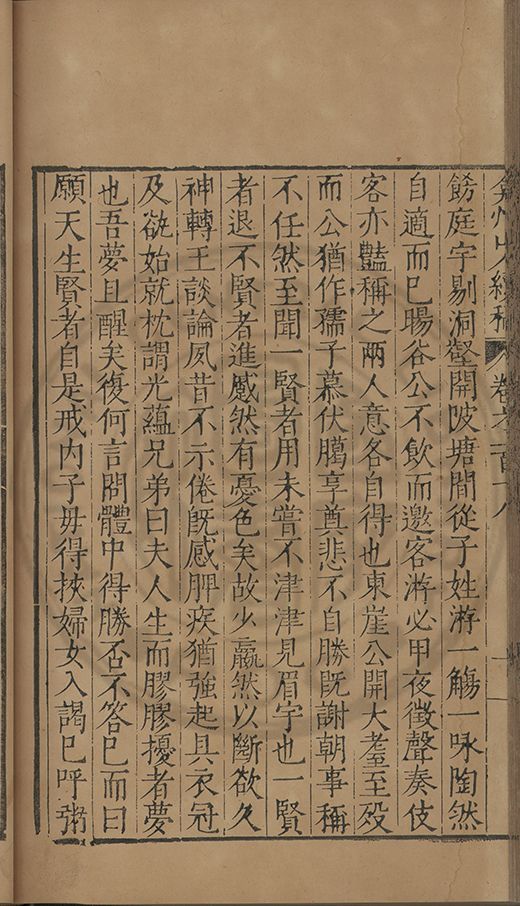 弇州山人續稿 卷之一百十八
餝庭宇剔洞壑開陂塘間從子姓游一觴一咏陶然
自適而已暘谷公不飲而邀客游必甲夜徵聲奏伎
客亦豔稱之兩人意各自得也東崖公開大耋至歿
而公猶作孺子慕伏臈享奠悲不自勝既謝朝事稱
不任然至聞一賢者用未嘗不津津見眉宇也一賢
者退不賢者進慼然有憂色矣故少羸然以斷欲久
神轉王談論夙昔不示倦既感脾疾猶強起具衣冠
及欲始就枕謂光蘊兄弟曰夫人生而膠膠擾者夢
也吾夢且醒矣復何言問體中得勝否不答已而曰
願天生賢者自是戒內子毋得挾婦女入謁已呼粥